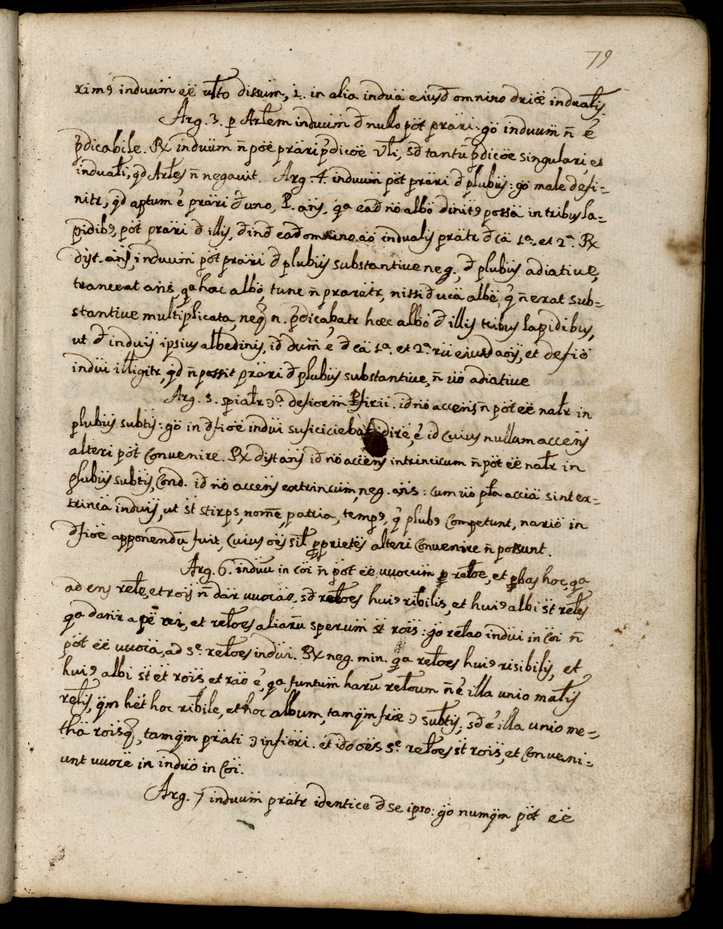 79
rimꝯ induum̃ eẽ ulto dissum̃, 1. in alia indua eiusđ omnino driæ indualis
Arg. 3. p Artem induum̃ đ nulo põt prari: go induum̃ ñ é
pdicabile. Rx induum̃ ñ põe prari pdicõe Vli, sđ tantũ pdicõe singulari, es
induali, qđ Artes ñ negavit. Arg. 4. induum̃ põt prari đ plubus: go male defi=
nitr, qđ aptum é prari đ uno, P. ans, qa eađ no albo dinite possa in tribus la=
pidibꝯ, põt prari đ illis, đinđ eađ omnino aõ indualis pratr đ cã 1ª. et 2ª. Rx
dist. ans, induum̃ põt prari đ plubus substantive neg., đ plubus adiative,
tranceat ans qa hac albo, tunc ñ praretr, nissi đ uca albe, q ñ erat sub=
stantive multiplicata, neq n. pdicabatr hæc albo đ illis tribus lapidibus,
ut đ induis ipsius albedinis, iđ dum é đ cã 1ª. et 2ª. rũ eiusđ aõis, et defiõ
indui illigitr, qđ ñ possit prari đ plubus substantive, ñ uo adiative
Arg. 5. spiatr ꝯª defiorem Pfirii. iđ no accens ñ põt eẽ natr in
plubus subtis: go in đfiõe indui suficiciebat dire, é id cuius nullam accens
alteri põt convenire. Rx dist ans iđ no accens intrincicum ñ põt eẽ natr in
plubus subtis, Conđ. iđ no accens extrincum, neg. ans: cum uo pla acciã sint ex=
trinca induis, ut st stirps, nome, patria, tempꝯ, q plubꝯ competunt, nario in
đfiõe apponendũ fuit, cuius ois sil proprietes alteri convenire ñ possunt.
Arg. 6. induũ in coi ñ põt eẽ uvocum p ratoe, et pbas hoc, qa
ad ens rele, et rois ñ dar uvocaõ, sđ reloes huiꝯ ribilis, et huiꝯ albi st reles
qa danr a pẽ rei, et reloes aliarũ sperum st rois: go relaõ indui in coi ñ
põt eẽ uvoca, ad se reloes indui. Rx neg. min. qa reloes huiꝯ risibilis, et
huiꝯ albi st et rois et raõ é, qa funtum̃ harũ reloum ñ é illa unio matis
relis, qm het hoc ribile, et hoc album, tamqm froe ꝯ subtis; sđ é illa unio me=
tha roisq, tamqm prati ꝯ infiori. et iđo oẽs se reloes st rois, et conveni=
unt uvoce in induo in coi.
Arg. 7 induum̃ pratr identice đ se ipso: go numqm põt eẽ